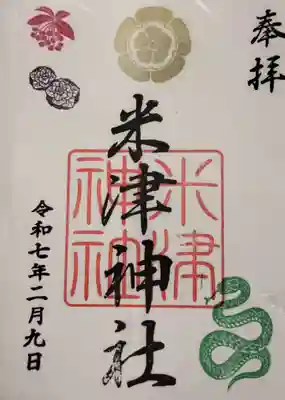 奉拝
米津神社
米津
神社
令和七年二月九日